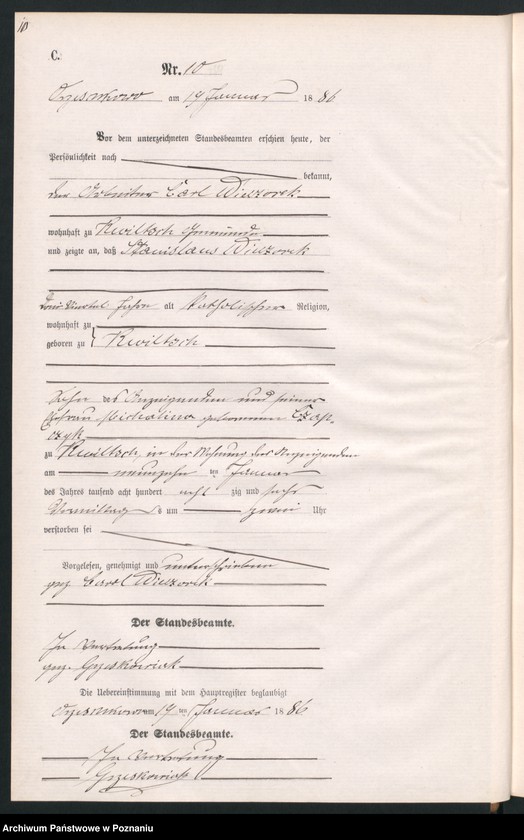 10
C.
Nr. 10
Orzeschkowo am 19 Januar 1886
Vor dem unterzeichneten Standesbeamten erschien heute, der
Persönlichkeit nach
bekannt,
der Arbeiter Carl Wieczorek
wohnhaft zu Kwiltsch Gemeinde
und zeigte an, daß Stanislaus Wieczorek
drei Viertel Jahre alt katholischer Religion,
wohnhaft zu
geboren zu Kwiltsch
Sohn des Anzeigenden und seiner
Ehefrau Michalina geborenen
zu Kwiltsch, in der Wohnung des Anzeigenden
am neunzehn ten Januar
des Jahres tausend acht hundert acht zig und sechs
Vormittags um zwei Uhr
verstorben sei
Vorgelesen, genehmigt und unterschrieben
gez. Carl Wieczorek
Der Standesbeamte.
In Vertretung
gez. Grzeskowiak
Die Uebereinstimmung mit dem Hauptregister beglaubigt
Orzeschkowo am 19 ten Januar 1886
Der Standesbeamte.
In Vertretung
Grzeskowiak
Archiwum Państwowe w Poznaniu